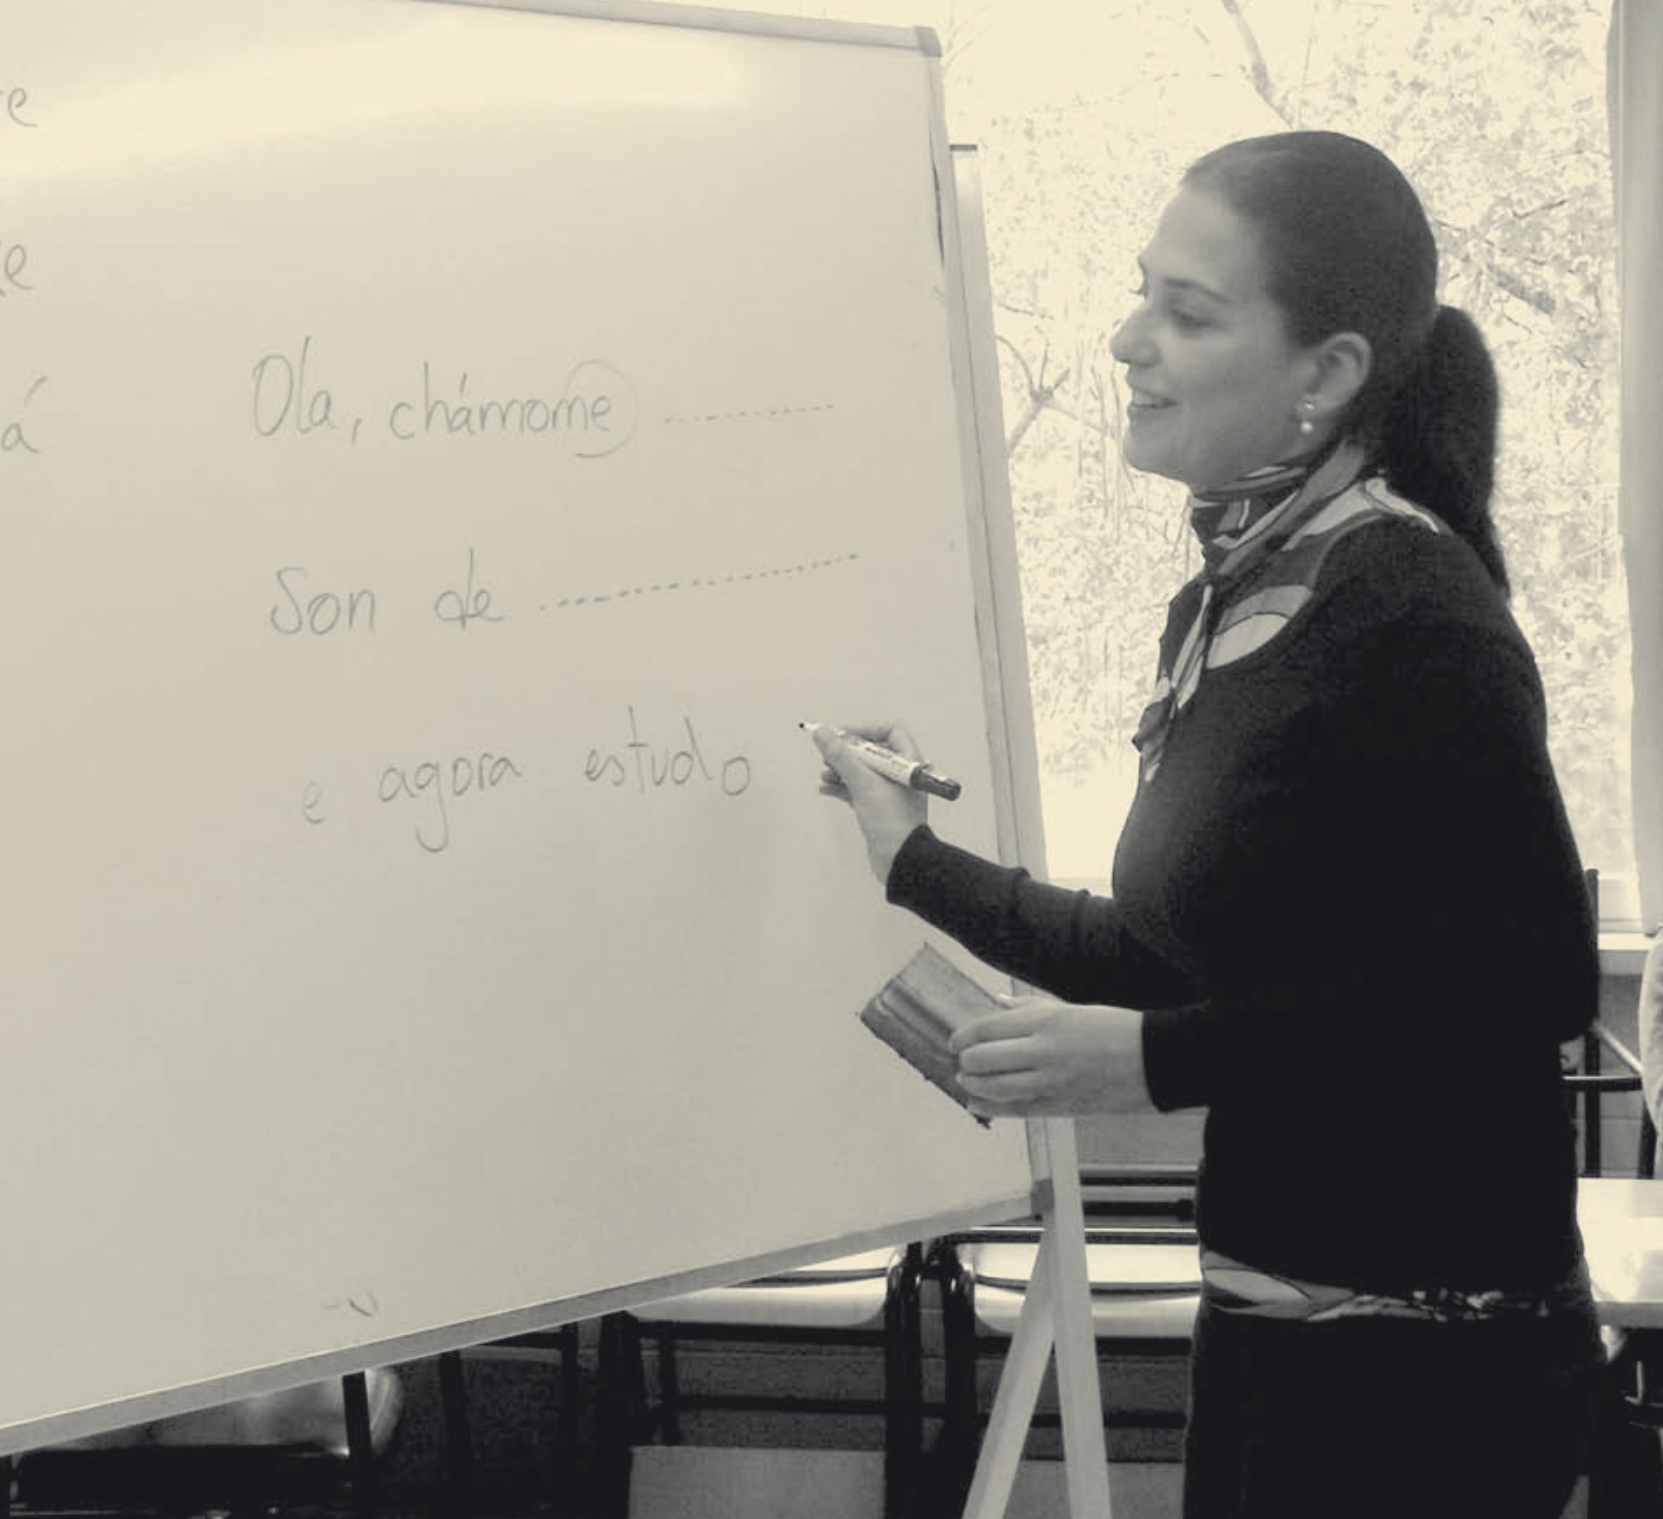 Ola, chámome ............
Son de ....................
e agora estudo